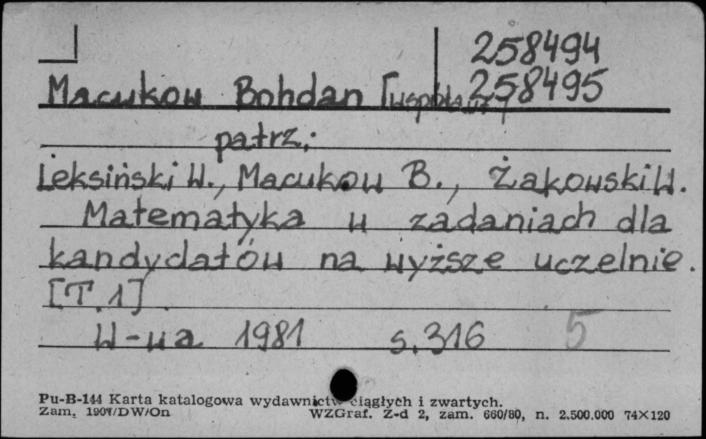 258494
Macukow Bohdan [współaut.] 258495
patrz:
Leksiński W., Macukow B., Żakowski W.
Matematyka w zadaniach dla
kandydatów na wyższe uczelnie.
[T.1]
W-wa 1981 s.316 5
Pu-B-144 Karta katalogowa wydawnictw ciągłych i zwartych.
Zam. 1907/DW/On WZGraf. Z-d 2, zam. 660/80, n. 2.500.000 74×120